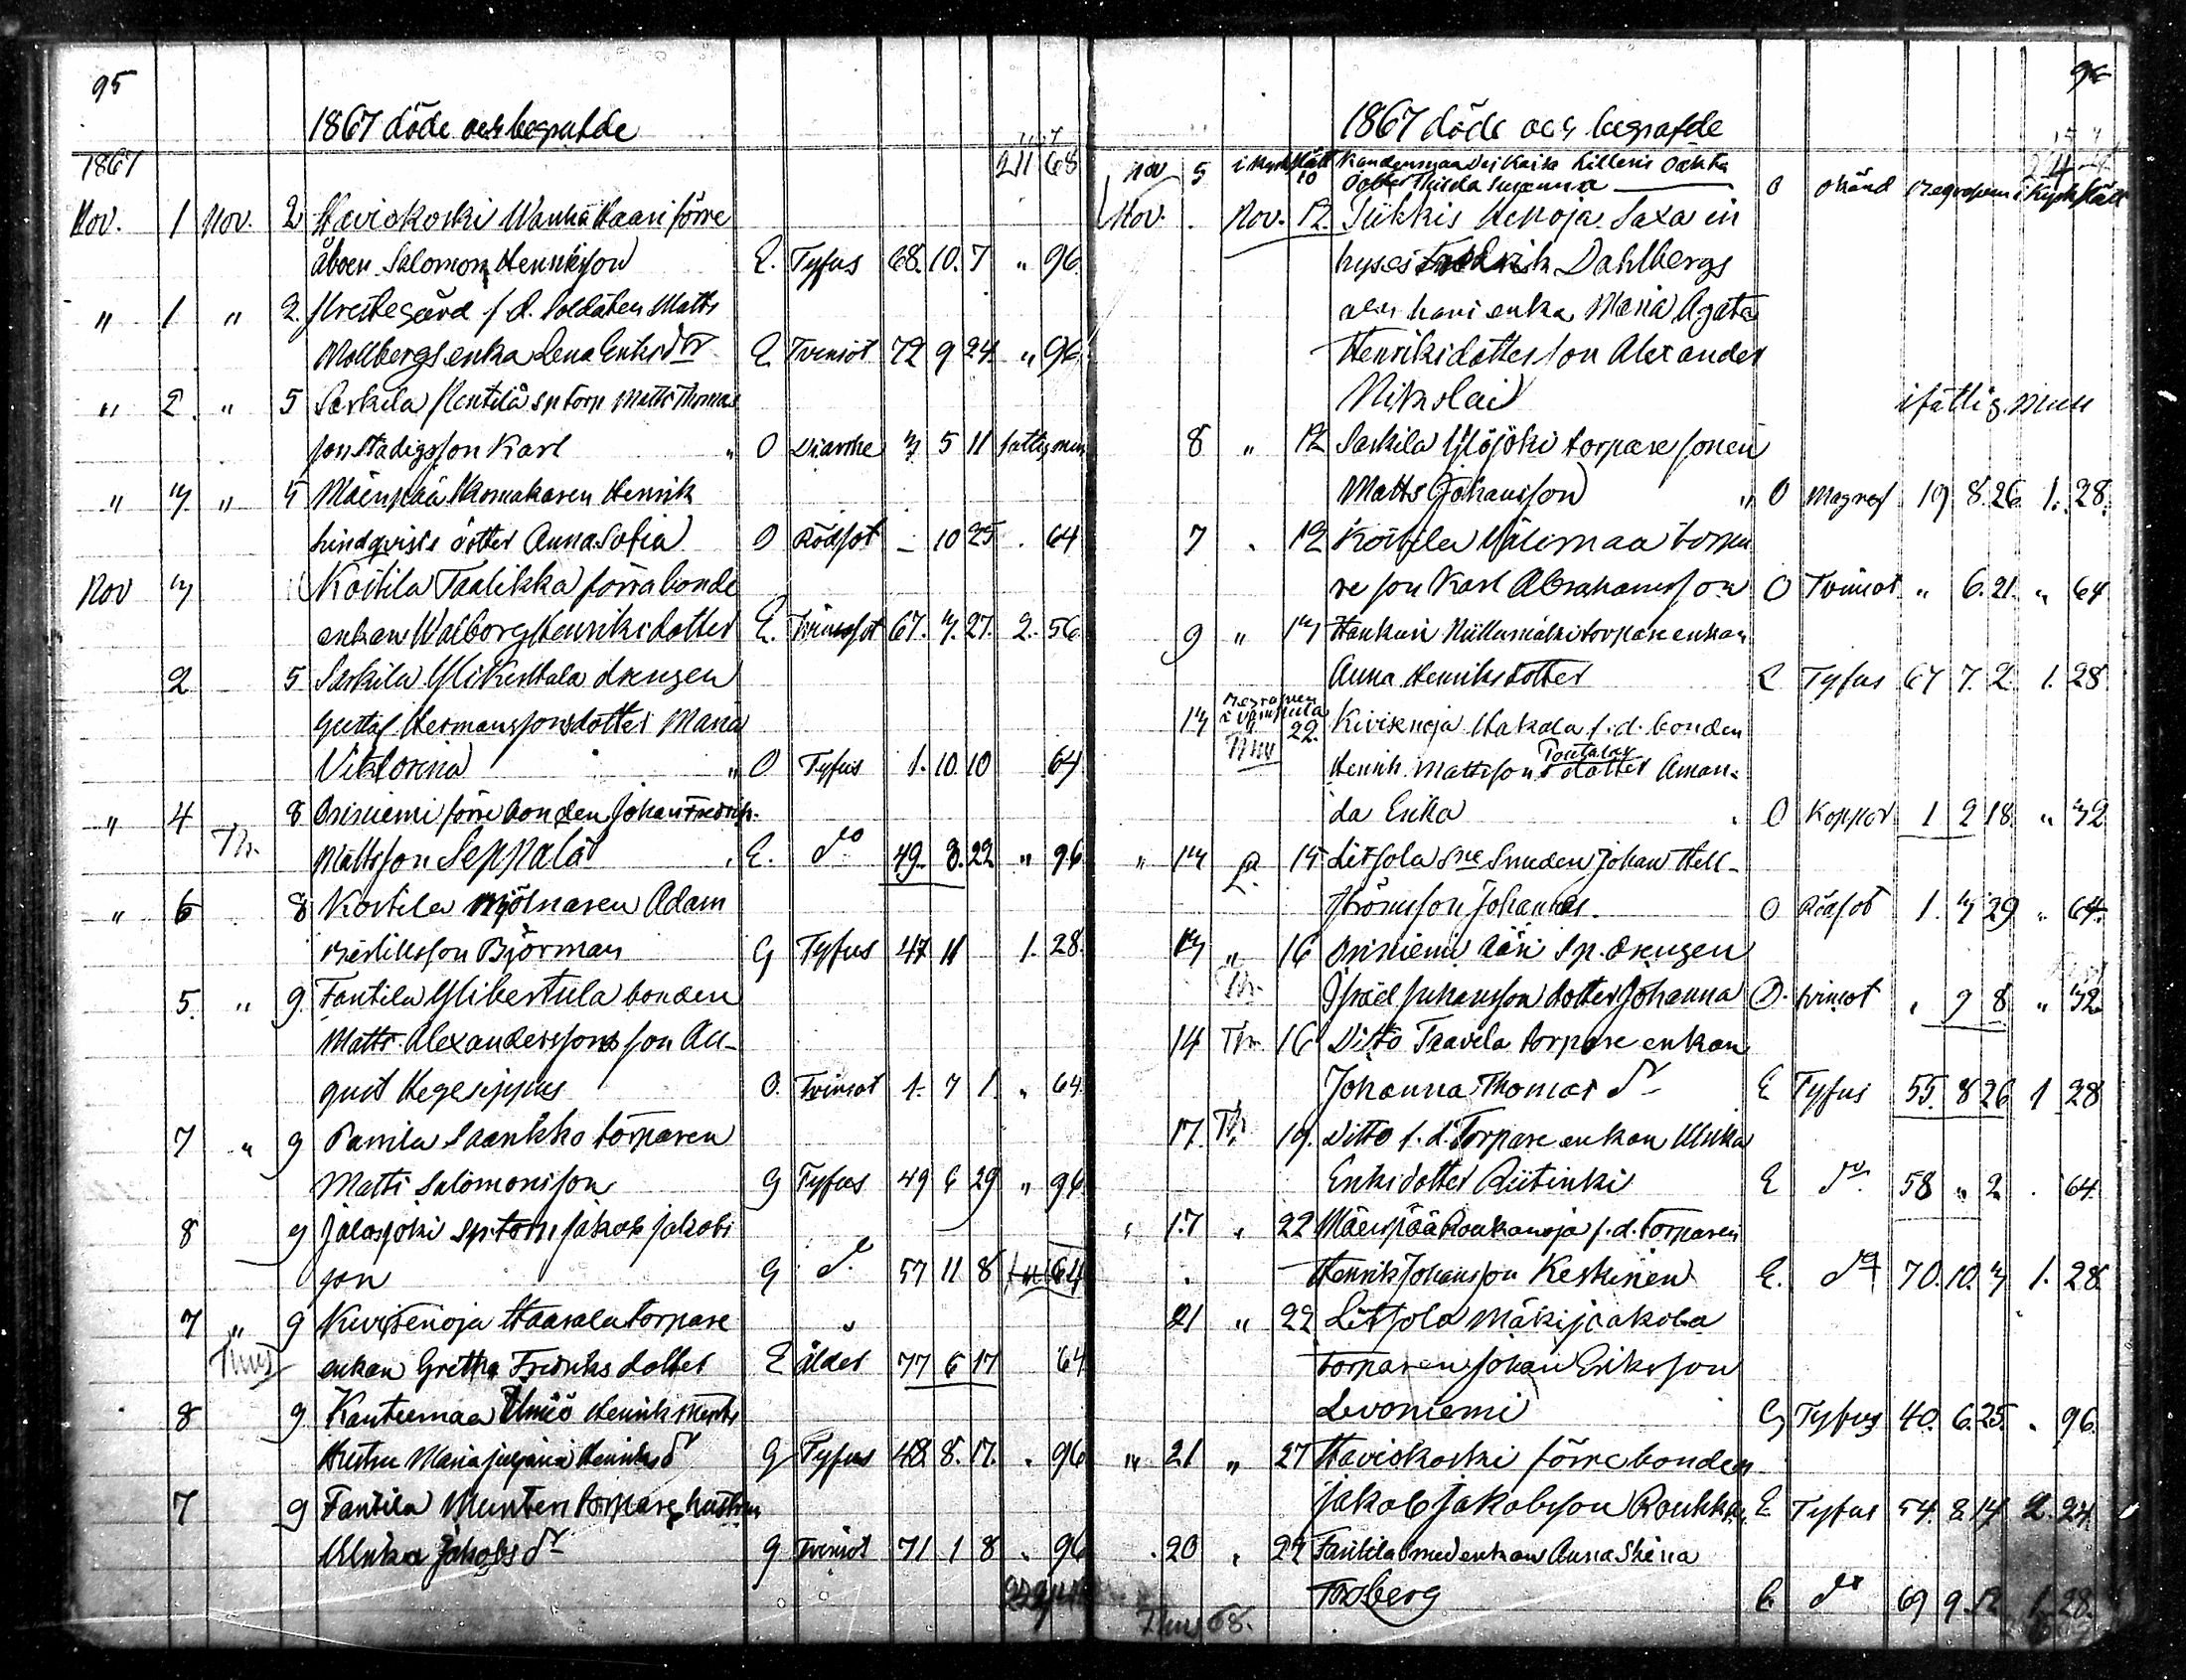 95
1867 döde och begrafde
1867 211 68
Nov. 1 Nov. 2 Haviokoski Wanhä Kaari förre
åboen Salomon Henriksson E. Tyfus 68. 10. 7 " 96.
" 1 " 2. Prestegård f. d. Soldaten Matts
Mollbergs enka Lena Eriksdtr E. Tvinsot 72 9 24 " 96.
" 2. " 5 Särkilä Penttilä sp torp Matts Thomas
son Stadigs son Karl " O Diarrhe 3 5 11 fattig man
" 3 " 5 Mäenpää Skomakaren Henrik
Lindqvists dotter Anna Sofia O Rödsot – 10 25 . 64
Nov 3 Köitilä Taalikka förra bonde
enkan Walborg Henriksdotter E. Tvinsot 67. 3. 27. 2. 56
2 5 Särkilä Ylikerttula drengen
Gustaf Hermanssons dotter Maria
Viktorina " O. Tyfus 1. 10. 10 64
" 4 8 Orisniemi förre bonden Johan Fredrik
Th. Mattsson Seppälä . E. do 49. 8. 22 " 96
" 6 8 Köitilä mjölnaren Adam
Björman G Tyfus 47 11 1. 28.
5. " 9 Fantila Ylikertula bonden
Matts Alexanderssons son Au-
gust Hegesippus O. Tvinsot 1. 7 1. " 64.
7 " 9 Parrila Saankko torparen
Matts Salomonsson G Tyfus 49 6 29 " 96
8 9 Jalasjoki sp. torp. Jakob Jakobs
son G do 57 11 8 64
7 " 9 Kivisenoja Haavala torpare
enkan Gretha Fredriks dotter E ålder 77 6 17 64
8 9 Kanteenmaa Uusiö Henrik
Hustru Maria Juljana Henriks dr G Tyfus 48. 8. 17. . 96
7 9 Fantila Munteri torpare hustrun
Ulrika Jakobs dr G Tvinsot 71 1 8 . 96
96
1867 döde och begrafde
Nov 5 10 Kandenmaa
dotter Hilda Susanna O okänd
Nov. . Nov. 12. Tükkis Hennoja Saxa in
hyses Fredrik Dahlbergs
och hans enka Maria Agata
Henriksdotter son Alexander
Nikolai i fattig man
8 " 12 Särkilä Yköjoki torpare sonen
Matts Johansson " O Magref 19 8. 26 1. 28.
7 . 12 Köitilä Välimaa torpa
re son Karl Abrahamsson O Tvinsot " 6. 21. " 64
9 " 13 Hankuri Niilumäki torpare enkan
Anna Henriksdotter E Tyfus 67 7. 2 1. 28
13 begrafven i Vampula 22. Kivisenoja Hakala f. d. bonden
Henrik Mattsson Pontalas dotter Aman-
da Erika . O Koppor 1 2 18. " 32
" 13 15 Letsola Sne Smeden Johan Hell-
ströms son Johannes. O Rödsot 1. 3 29 " 64.
13 " 16 Orisniemi Ääri sp. drengen
Th. Israel Juhansson dotter Johanna O. tvinsot . 9 8 " 32
14 Th. 16 Ditto Taavela torpare enkan
Johanna Thomas dr E Tyfus 55. 8 26 1 28
17. Th. 19. Ditto f. d. Torpare enkan Ulrika
Eriksdotter Riitinki E do 58 " 2 . 64.
" 17 . 22 Mäenpää Roukanoja f. d. torparen
Henrik Johansson Keskinen E. do 70. 10. 3 1. 28
21 " 22 Letsola Mäkijaakola
torparen Johan Eriksson
Levoniemi G Tyfus 40. 6. 25. . 96.
" 21 " 27 Haviokoski förre bonden
Jakob Jakobsson Roukka E Tyfus 54. 8. 14. 2. 24.
. 20 . 24 Fantila smed enkan Anna Stina
Forsberg E do 69 9 12 1. 28.